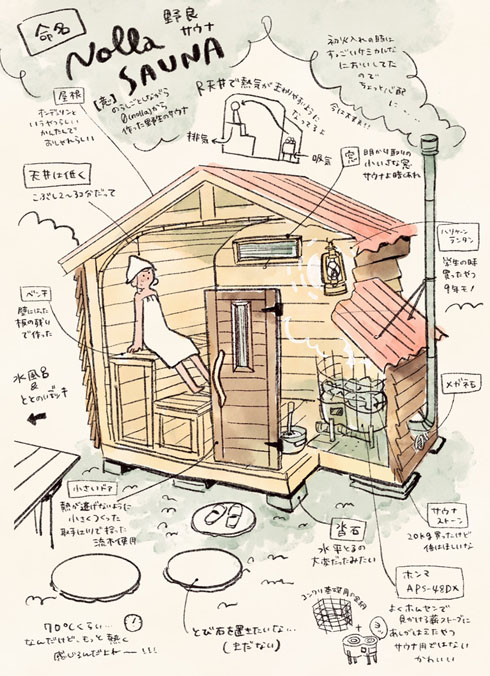 命名
Nolla
SAUNA
野良
サウナ
【意】
のらしごとしながら
0(nolla)から
作った野生のサウナ
初火入れの時に
すっごいケミカルな
においしてた
ので
ちょっと心配
に
今は大丈夫!!
R天井で熱気がまわりやすいように
なってるよ
排気
吸気
屋根
オンデュリンと
いうやつらしい
かんたんで
おしゃれらしい
天井は低く
こぶし2〜3コ分だって
窓
明かり取りの
小いさな窓
サウナよ時はれ
ハリケーン
ランタン
学生の時
買ったやつ
9年モノ!
ベンチ
壁にはった
板の残り
で作った
水風呂
&
ととのいデッキ
メガネ石
小さいドア
熱が逃げないように
小さくつくった
取手は川で拾った
流木使用
サウナ
ストーン
20kg買ったけど
倍はほしいな
沓石
水平とるの
大変だったみたい
ホンマ
APS-48DX
よくホムセンで
見かける薪ストーブに
あしがはえたやつ
サウナ用ではない
かわいい
コンクリ基礎用の金網
+
70℃くらい…
なんだけど、もっと熱く
感じるんだよねー!!!
とび石を置きたいな…
(まだない)